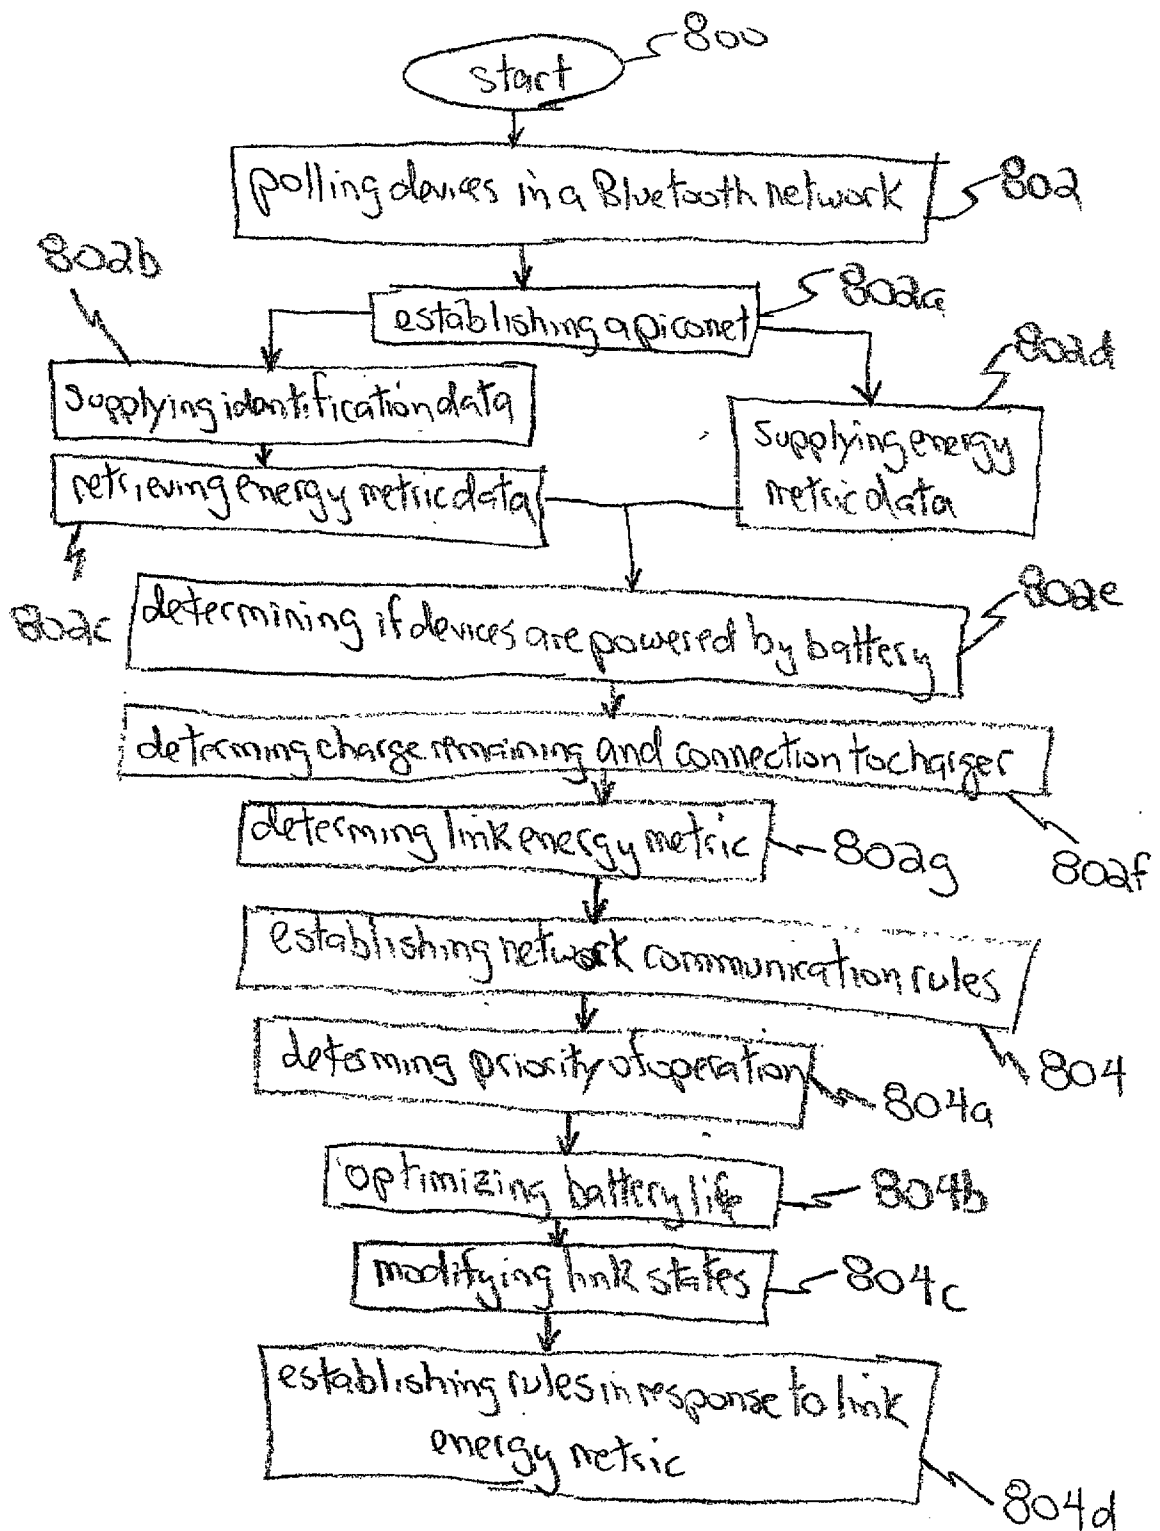 800
start
polling devices in a Bluetooth network
802
802b
802a
establishing a piconet
802d
supplying identification data
supplying energy
metric data
retrieving energy metric data
802c
802e
determining if devices are powered by battery
determing charge remaining and connection to charger
802f
determing link energy metric
802g
establishing network communication rules
804
determing priority of operation
804a
optimizing battery life
804b
modifying link states
804c
establishing rules in response to link
energy metric
804d